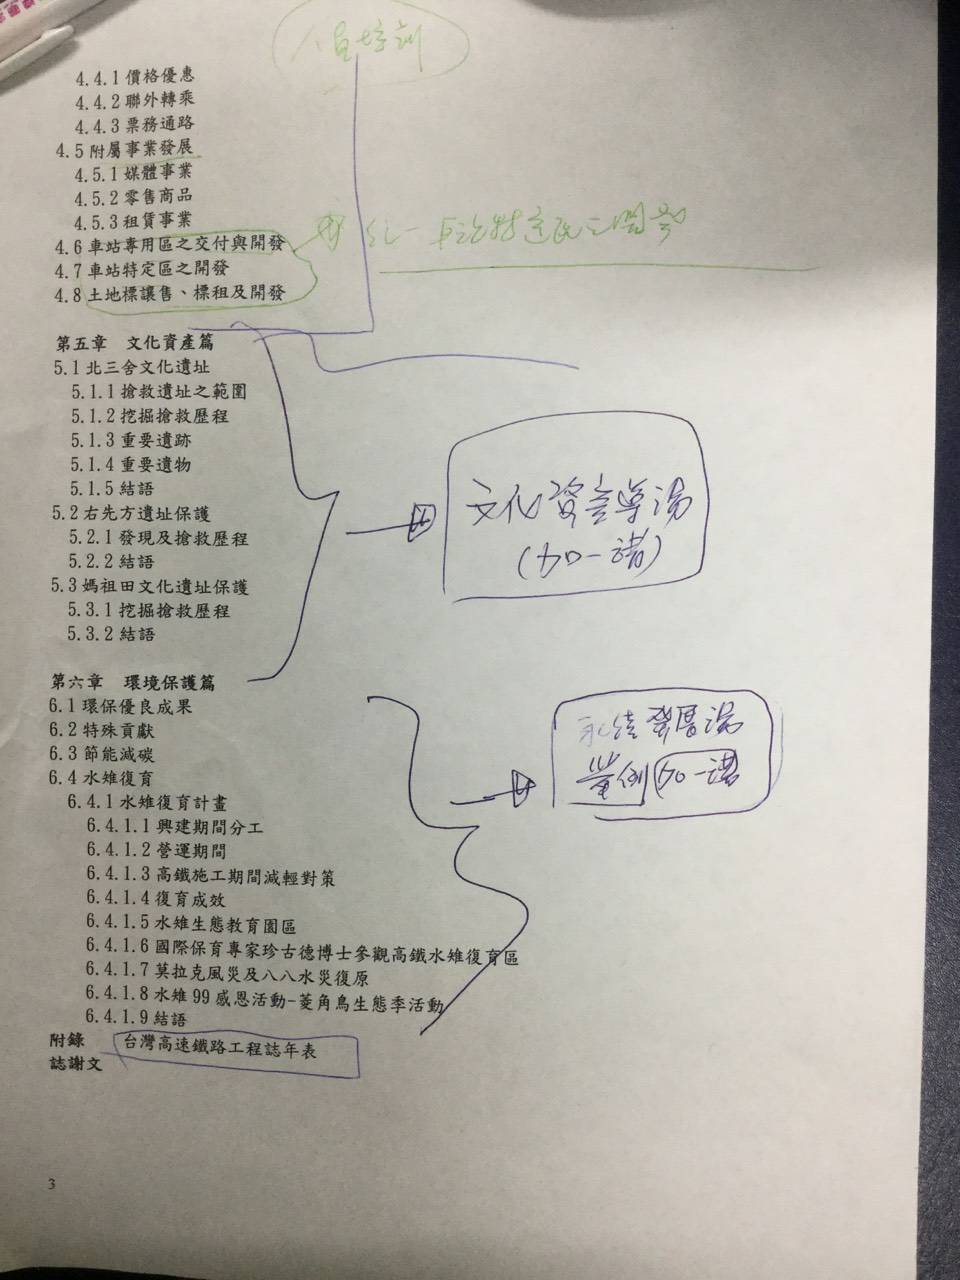 人員培訓
4.4.1 價格優惠
4.4.2 聯外轉乘
4.4.3 票務通路
4.5 附屬事業發展
4.5.1 媒體事業
4.5.2 零售商品
4.5.3 租賃事業
4.6 車站專用區之交付與開發
4.7 車站特定區之開發
4.8 土地標讓售、標租及開發
第五章 文化資產篇
5.1 北三舍文化遺址
5.1.1 搶救遺址之範圍
5.1.2 挖掘搶救歷程
5.1.3 重要遺跡
5.1.4 重要遺物
5.1.5 結語
5.2 右先方遺址保護
5.2.1 發現及搶救歷程
5.2.2 結語
5.3 媽祖田文化遺址保護
5.3.1 挖掘搶救歷程
5.3.2 結語
文化資產導
(加一
第六章 環境保護篇
6.1 環保優良成果
6.2 特殊貢獻
6.3 節能減碳
6.4 水雉復育
6.4.1 水雉復育計畫
6.4.1.1 興建期間分工
6.4.1.2 營運期間
6.4.1.3 高鐵施工期間減輕對策
6.4.1.4 復育成效
6.4.1.5 水雉生態教育園區
6.4.1.6 國際保育專家珍古德博士參觀高鐵水雉復育區
6.4.1.7 莫拉克風災及八八水災復原
6.4.1.8 水雉 99 感恩活動-菱角鳥生態季活動
6.4.1.9 結語
永續發展
附錄 台灣高速鐵路工程誌年表
誌謝文
3